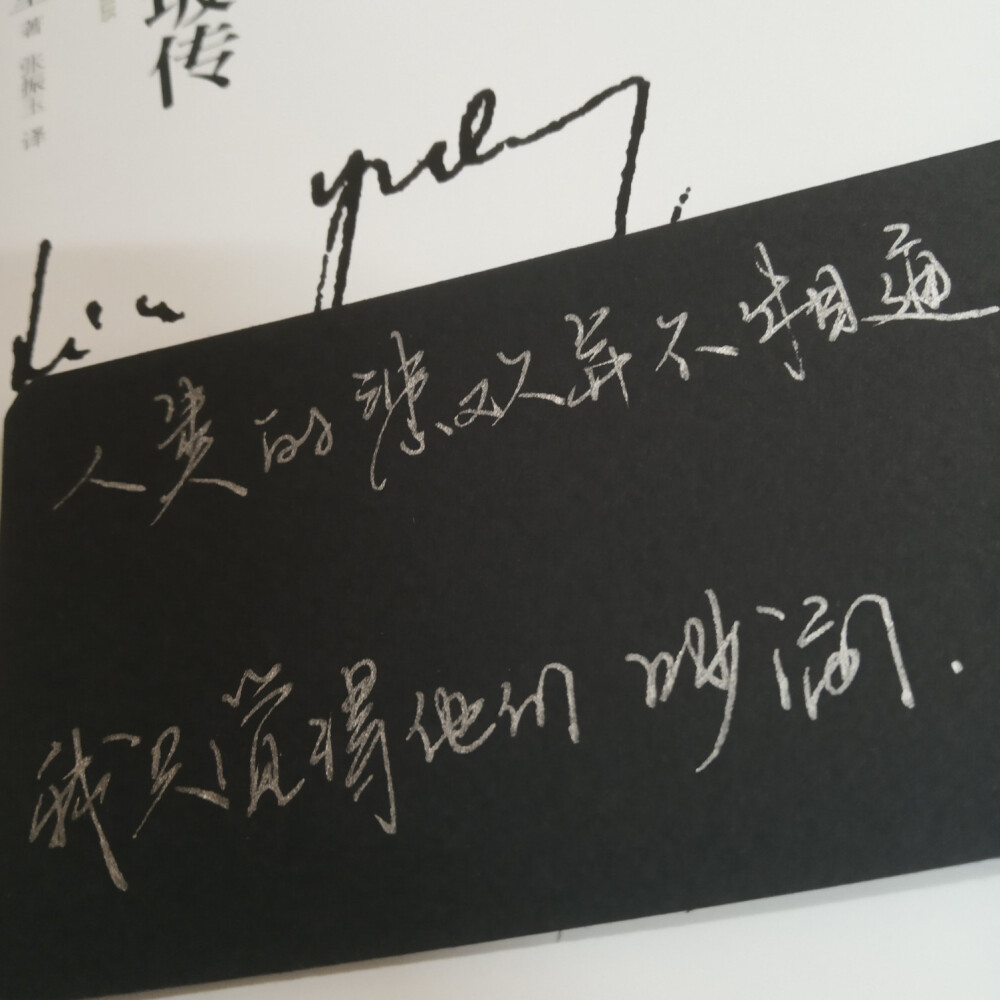 坡传
著 张振玉 译
Lin Yutang
人类的悲欢并不相通
我只觉得他们吵闹.